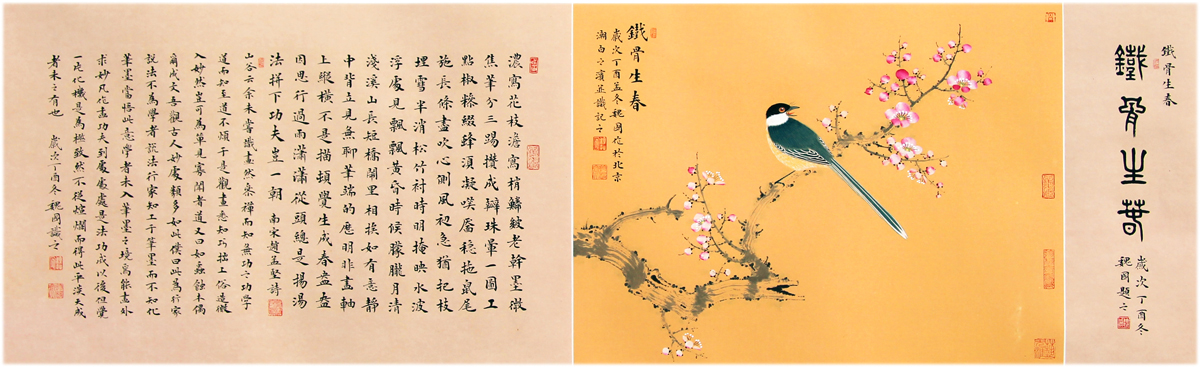 鐵骨生春
鐵骨生春
歲次丁酉冬
魏國題之
鐵骨生春
歲次丁酉孟冬魏國作於北京
潮白之濱並識記之
濃寫花枝澹寫梢鱗皴老幹墨微
焦筆分三踢攢成瓣珠暈一圓工
點椒糝綴蜂須凝笑靨穩拖鼠尾
施長條盡吹心側風初急猶把枝
埋雪半消松竹襯時明掩映水波
浮處見飄飄黃昏時候朦朧月清
淺溪山長短橋鬧里相挨如有意靜
中背立見無聊筆端的應明非畫軸
上縱橫不是描頓覺生成春盎盎
因思行過雨瀟瀟從頭總是揚湯
法拼下功夫豈一朝 南宋趙孟堅詩
山谷云余未嘗識畫然參禪而知無功之功學
道而知至道不煩于是觀畫悉知巧拙工俗造微
入妙然豈可為單見寡聞者道又曰如蟲蝕木偶
爾成文吾觀古人妙處類多如此僕曰此為行家
說法不為學者說法行家知工于筆墨而不知化
筆墨當悟此意學者未入筆墨之境焉能畫外
求妙凡作畫功夫到處處處是法功成以後但覺
一片化機是為極致然不從煊爛而得此平淡天成
者未之有也 歲次丁酉冬魏國識之